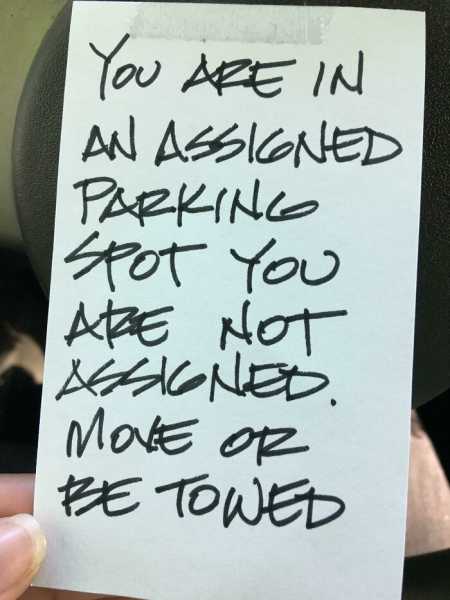 YOU ARE IN
AN ASSIGNED
PARKING
SPOT YOU
ARE NOT
ASSIGNED.
MOVE OR
BE TOWED